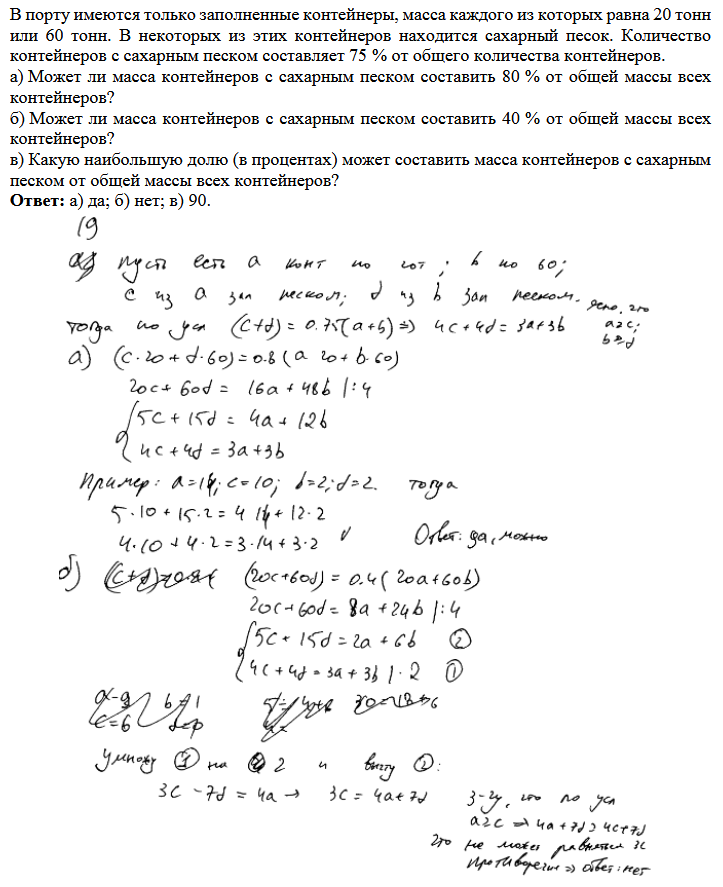 В порту имеются только заполненные контейнеры, масса каждого из которых равна 20 тонн
или 60 тонн. В некоторых из этих контейнеров находится сахарный песок. Количество
контейнеров с сахарным песком составляет 75 % от общего количества контейнеров.
а) Может ли масса контейнеров с сахарным песком составить 80 % от общей массы всех
контейнеров?
б) Может ли масса контейнеров с сахарным песком составить 40 % от общей массы всех
контейнеров?
в) Какую наибольшую долю (в процентах) может составить масса контейнеров с сахарным
песком от общей массы всех контейнеров?
Ответ: а) да; б) нет; в) 90.
19
пусть есть a конт по 20т ; b по 60;
c из a зап песком; d из b зап песком. Ясно, что
a≥c;
b≥d
тогда по усл (c+d)=0.75(a+b)=> 4c+4d=3a+3b
а) (c·20+d·60)=0.8(a·20+b·60)
20c+60d = 16a+48b |:4
5c+15d=4a+12b
4c+4d=3a+3b
Пример: a=14; c=10; b=2; d=2. тогда
5·10+15·2=4·14+12·2
4·10+4·2=3·14+3·2 ✓ Ответ: да, можно
б) (20c+60d)=0.4(20a+60b)
20c+60d=8a+24b |:4
5c+15d=2a+6b ②
4c+4d=3a+3b |·2 ①
a=9 b=1
c=6
умножу ① на 2 и вычту ②:
3c-7d=4a → 3c=4a+7d
З-чу, что по усл
a≥c => 4a+7d≥4c+7d
Это не может равняться 3c
Противоречие => ответ: нет